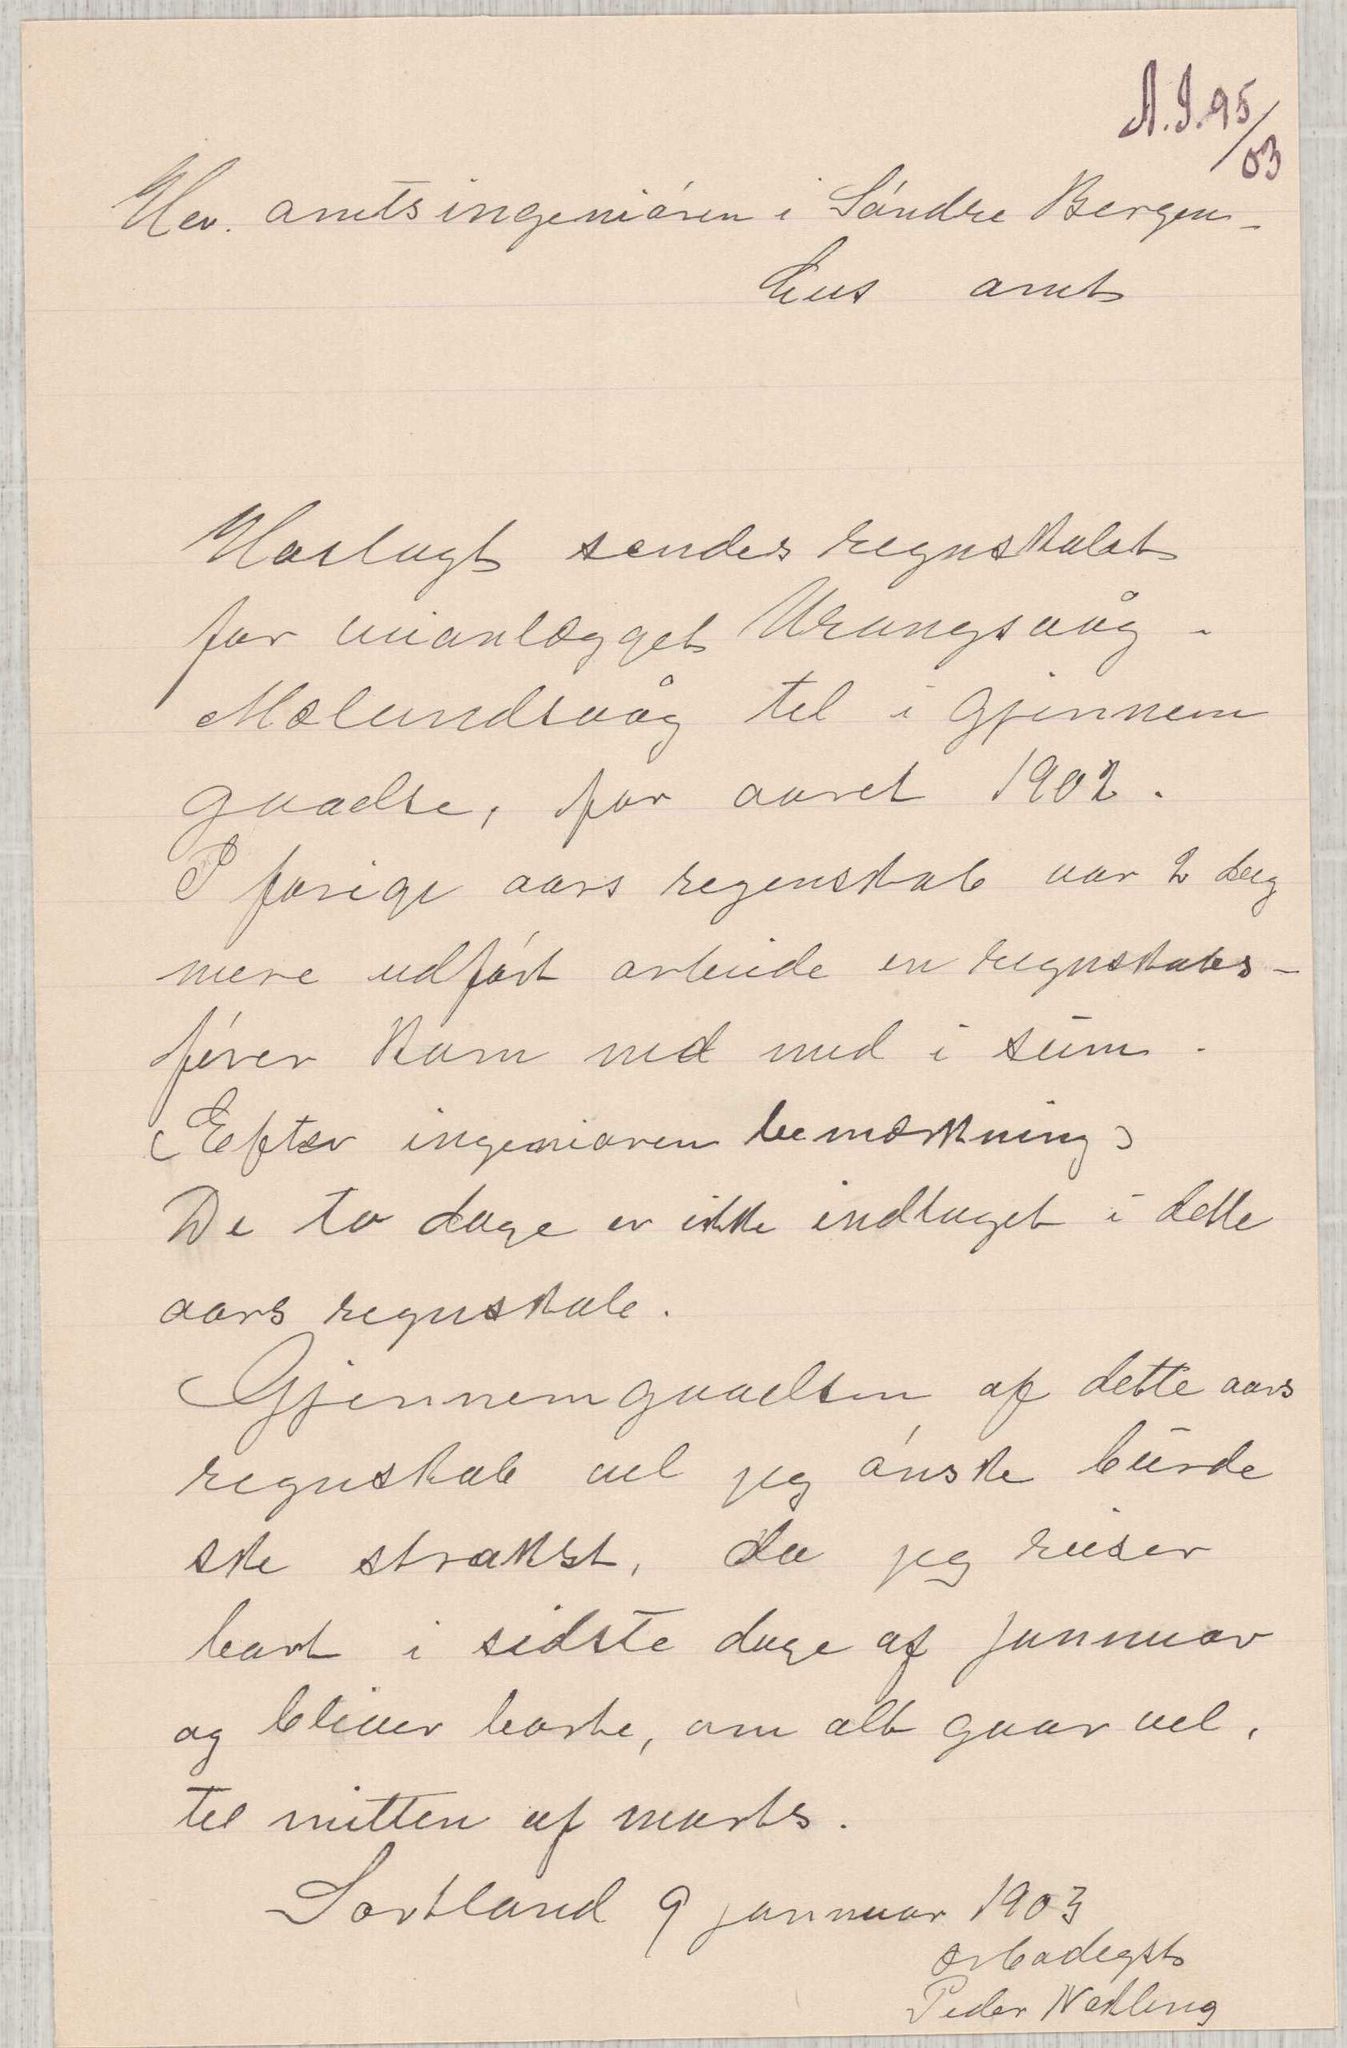 A.I. 95/03
Her. amtsingeniören i Söndre Bergen-
hus amt
Hoslagt sendes regnskabet
for veianlægget Vrangsvåg -
Mælandsvåg til i gjennem
gaaelse, for aaret 1902.
I forige aars regenskab var 2 dag
mere udført arbeide en regnskabs-
fører kom ned med i sum.
(Eefter ingeniøren bemærkning)
De to dage er ikke indtaget i dette
aars regnskab.
Gjennemgaaelsen af dette aars
regnskab vel jeg ønske burde
ske strakst, da jeg reiser
bort i sidste dage af jannuar
og bliver borte, om alt gaar vel,
til mitten af marts.
Sortland 9 jannuar 1903
Peder